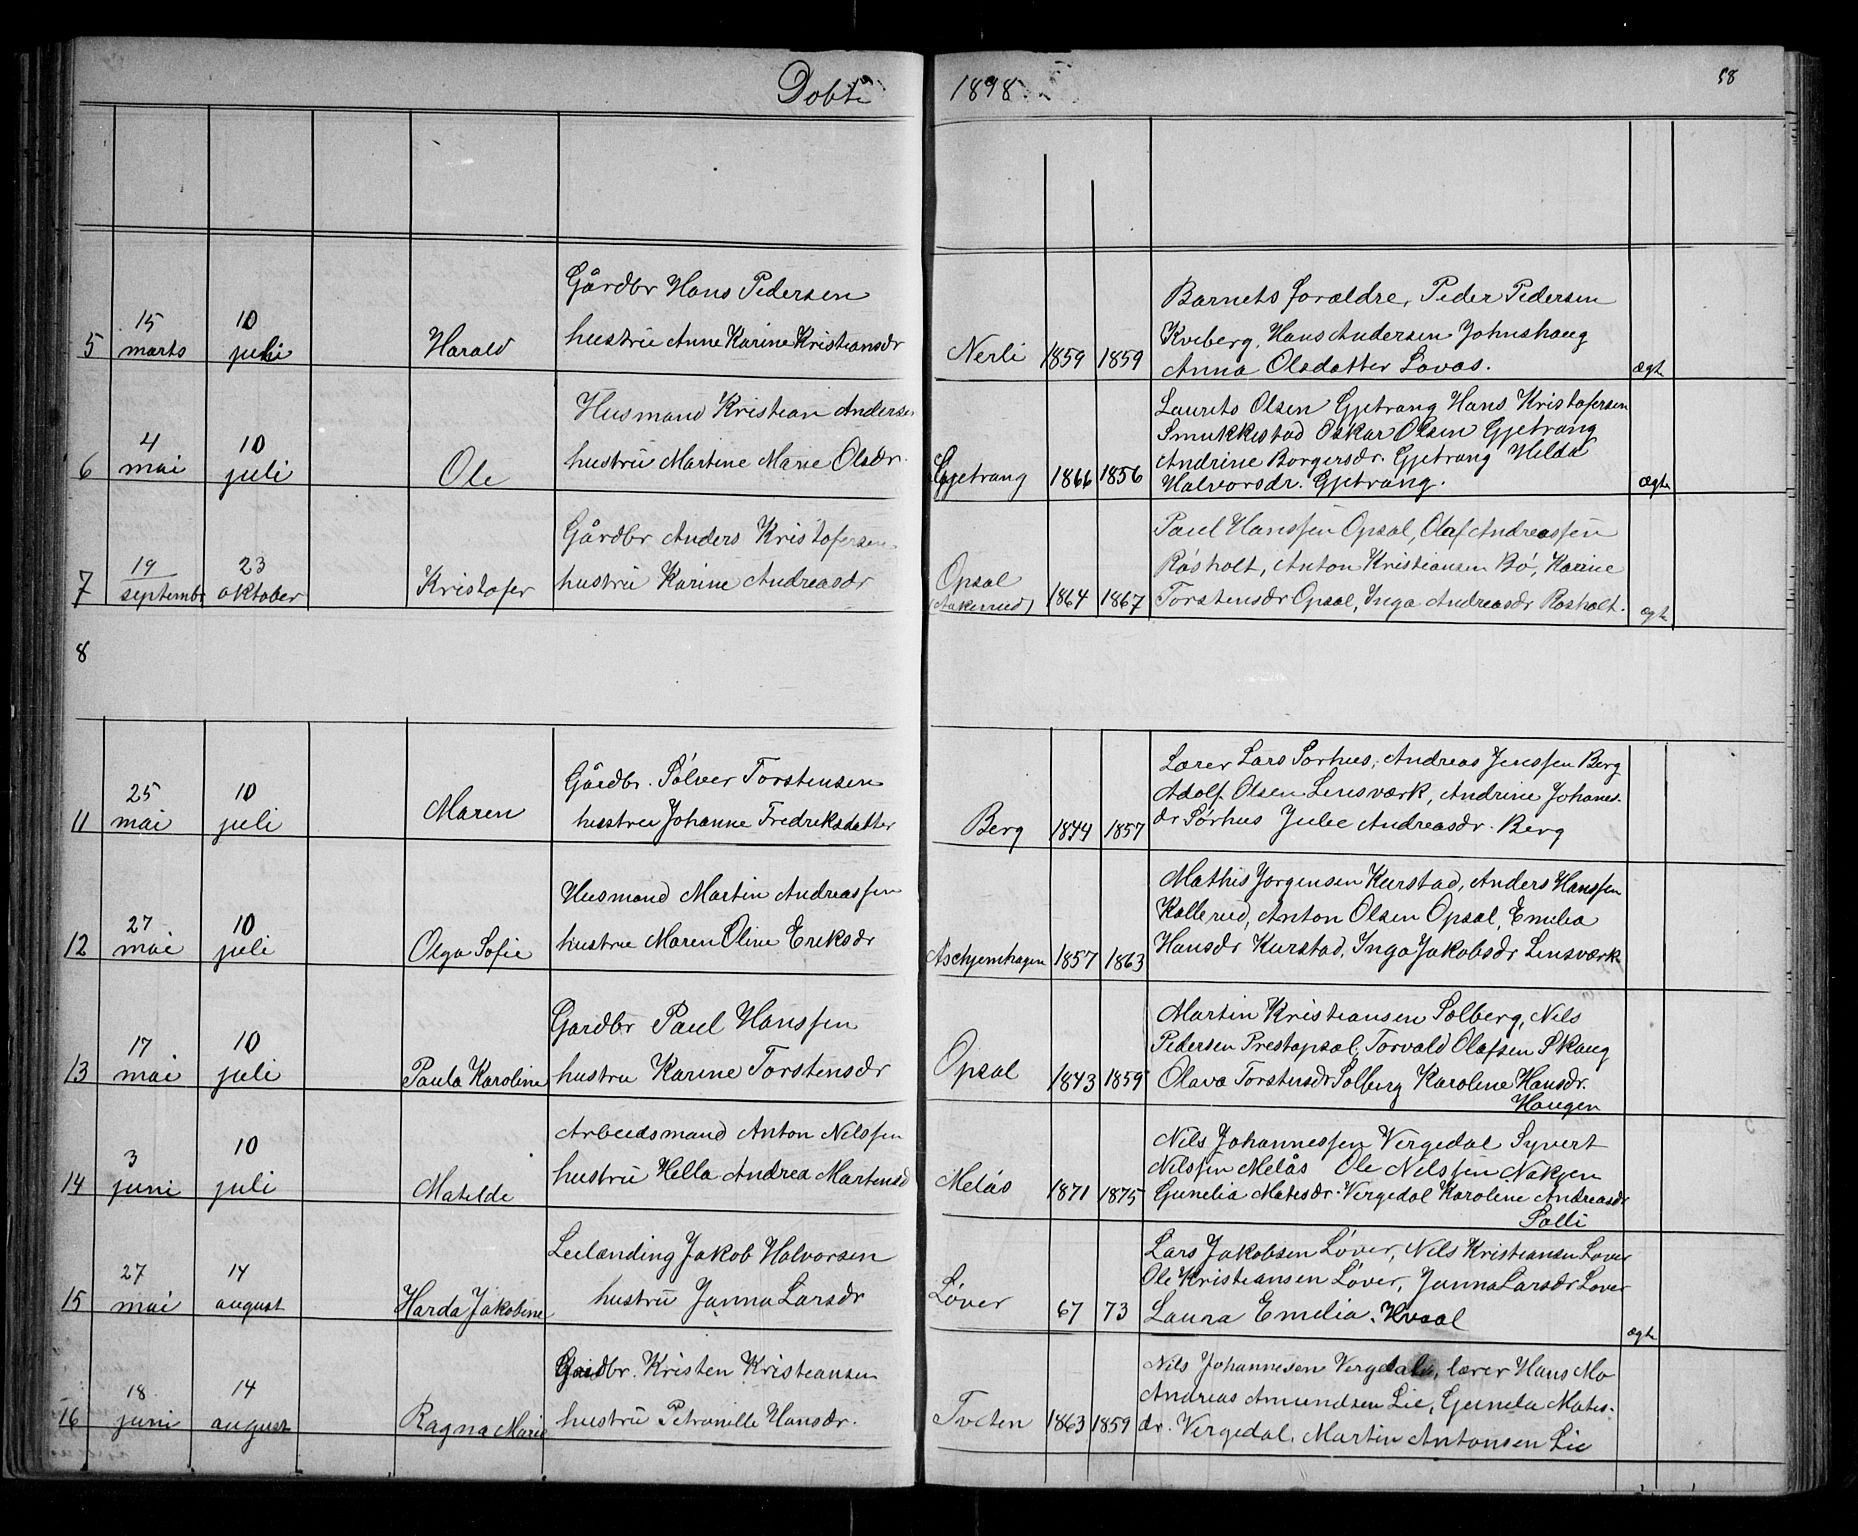 Døbte 1898.
58
5
15 marts
10 juli
Harald
Gårdbr Hans Pedersen
hustru Anne Karine Kristiansdr
Nerli
1859
1859
Barnets forældre, Peder Pedersen
Kveberg, Hans Andersen Johnshaug
Anna Olsdatter Lovas.
ægte
6
4 mai
10 juli
Ole
Husmand Kristian Andersen
hustru Martine Marie Olsdr.
Gjetrang
1866
1856
Laurits Olsen Gjetrang Hans Kristofersen
Smukkestad Oskar Olsen Gjetrang
Andrine Borgersdr. Gjetrang Hilda
Halvorsdr. Gjetrang.
ægte
7
19 septembr
23 oktober
Kristofer
Gårdbr Anders Kristofersen
hustru Karine Andreasdr
Opsal
(Aakerud)
1864
1867
Paul Hanssen Opsal, Olaf Andreassen
Røsholt, Anton Kristiansen Bø, Karine
Torstensdr Opsal, Inga Andreasdr Rosholt.
ægte
8
11
25 mai
10 juli
Maren
Gårdbr. Sølver Torstensen
hustru Johanne Fredriksdatter
Berg
1844
1857
Lærer Lars Sørhus, Andreas Jenssen Berg
Adolf Olsen Linsværk, Andrine Johanes-
dr Sørhus Julie Andreasdr. Berg
12
27 mai
10 juli
Olga Sofie
Husmand Martin Andreassen
hustru Maren Oline Eriksdr
Aschjemhagen
1857
1863
Mathis Jørgensen Kurstad, Anders Hanssen
Kollerud, Anton Olsen Opsal, Emilia
Hansdr Kurstad, Inga Jakobsdr Linsværk
13
17 mai
10 juli
Paula Karoline
Gardbr Paul Hanssen
hustru Karine Torstensdr
Opsal
1843
1859
Martin Kristiansen Solberg, Nils
Pedersen Prestopsal, Torvald Olafsen Skaug
Olava Torstensdr Solberg Karoline Hansdr.
Haugen
14
3 juni
10 juli
Matilde
Arbeidsmand Anton Nilssen
hustru Hella Andrea Martinsd
Melås
1871
1875
Nils Johannessen Vergedal Syvert
Nilssen Melås Ole Nilssen Nakjen
Gunelia Matisdr. Vergedal Karoline Andreasdr
Solli
15
27 mai
14 august
Harda Jakobine
Leilænding Jakob Halvorsen
hustru Janna Larsdr
Løver
67
73
Lars Jakobsen Løver, Nils Kristiansen Løver
Ole Kristiansen Løver, Janna Larsdr Løver
Laura Emelia Kvaal
ægte
16
18 juni
14 august
Ragna Marie
Gaardbr. Kristen Kristiansen
hustru Petronille Hansdr.
Tveten
1863
1859
Nils Johannesen Vergedal, lærer Hans Mo
Andreas Amundsen Lie, Gunela Matis-
dr. Vergedal, Martin Antonsen Lie